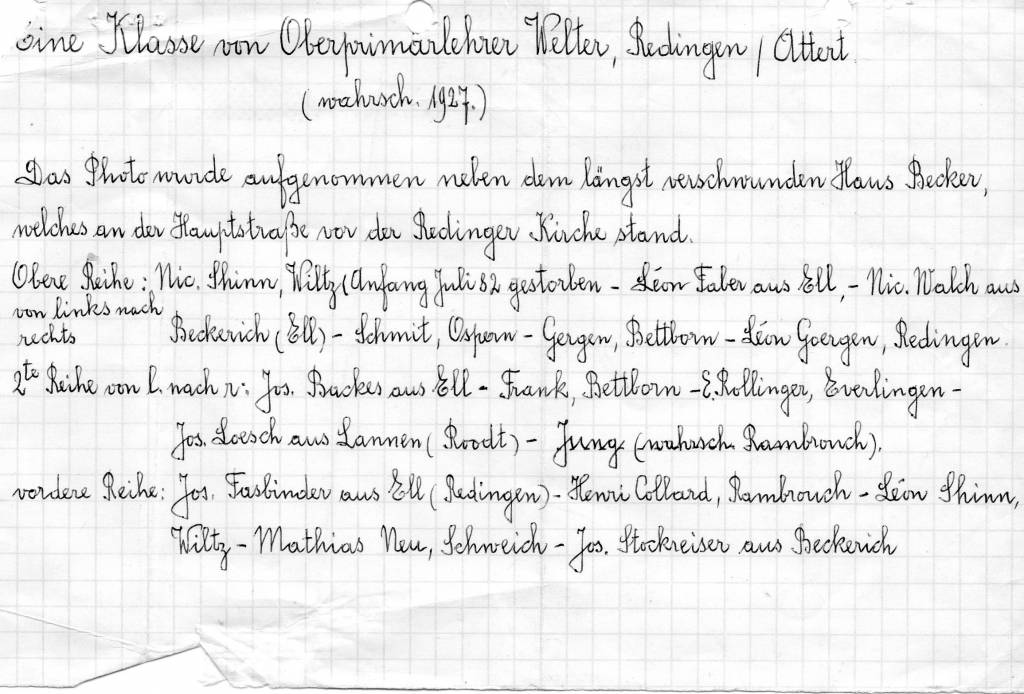 Eine Klasse von Oberprimärlehrer Welter, Redingen / Attert.
(wahrsch. 1927.)
Das Photo wurde aufgenommen neben dem längst verschwunden Haus Becker,
welches an der Hauptstraße vor der Redinger Kirche stand.
Obere Reihe : Nic. Thinn, Wiltz (Anfang Juli 82 gestorben - Léon Faber aus Ell, - Nic. Walch aus
von links nach
rechts Beckerich (Ell) - Schmit, Ospern - Gergen, Bettborn - Léon Goergen, Redingen.
2te Reihe von l. nach r: Jos. Backes aus Ell - Frank, Bettborn - E. Rollinger, Everlingen -
Jos. Loesch aus Lannen ( Roodt) - Jung (wahrsch. Rambrouch).
vordere Reihe: Jos. Fasbinder aus Ell ( Redingen) - Henri Collard, Rambrouch - Léon Thinn,
Wiltz - Mathias Neu, Schweich - Jos. Stockreiser aus Beckerich